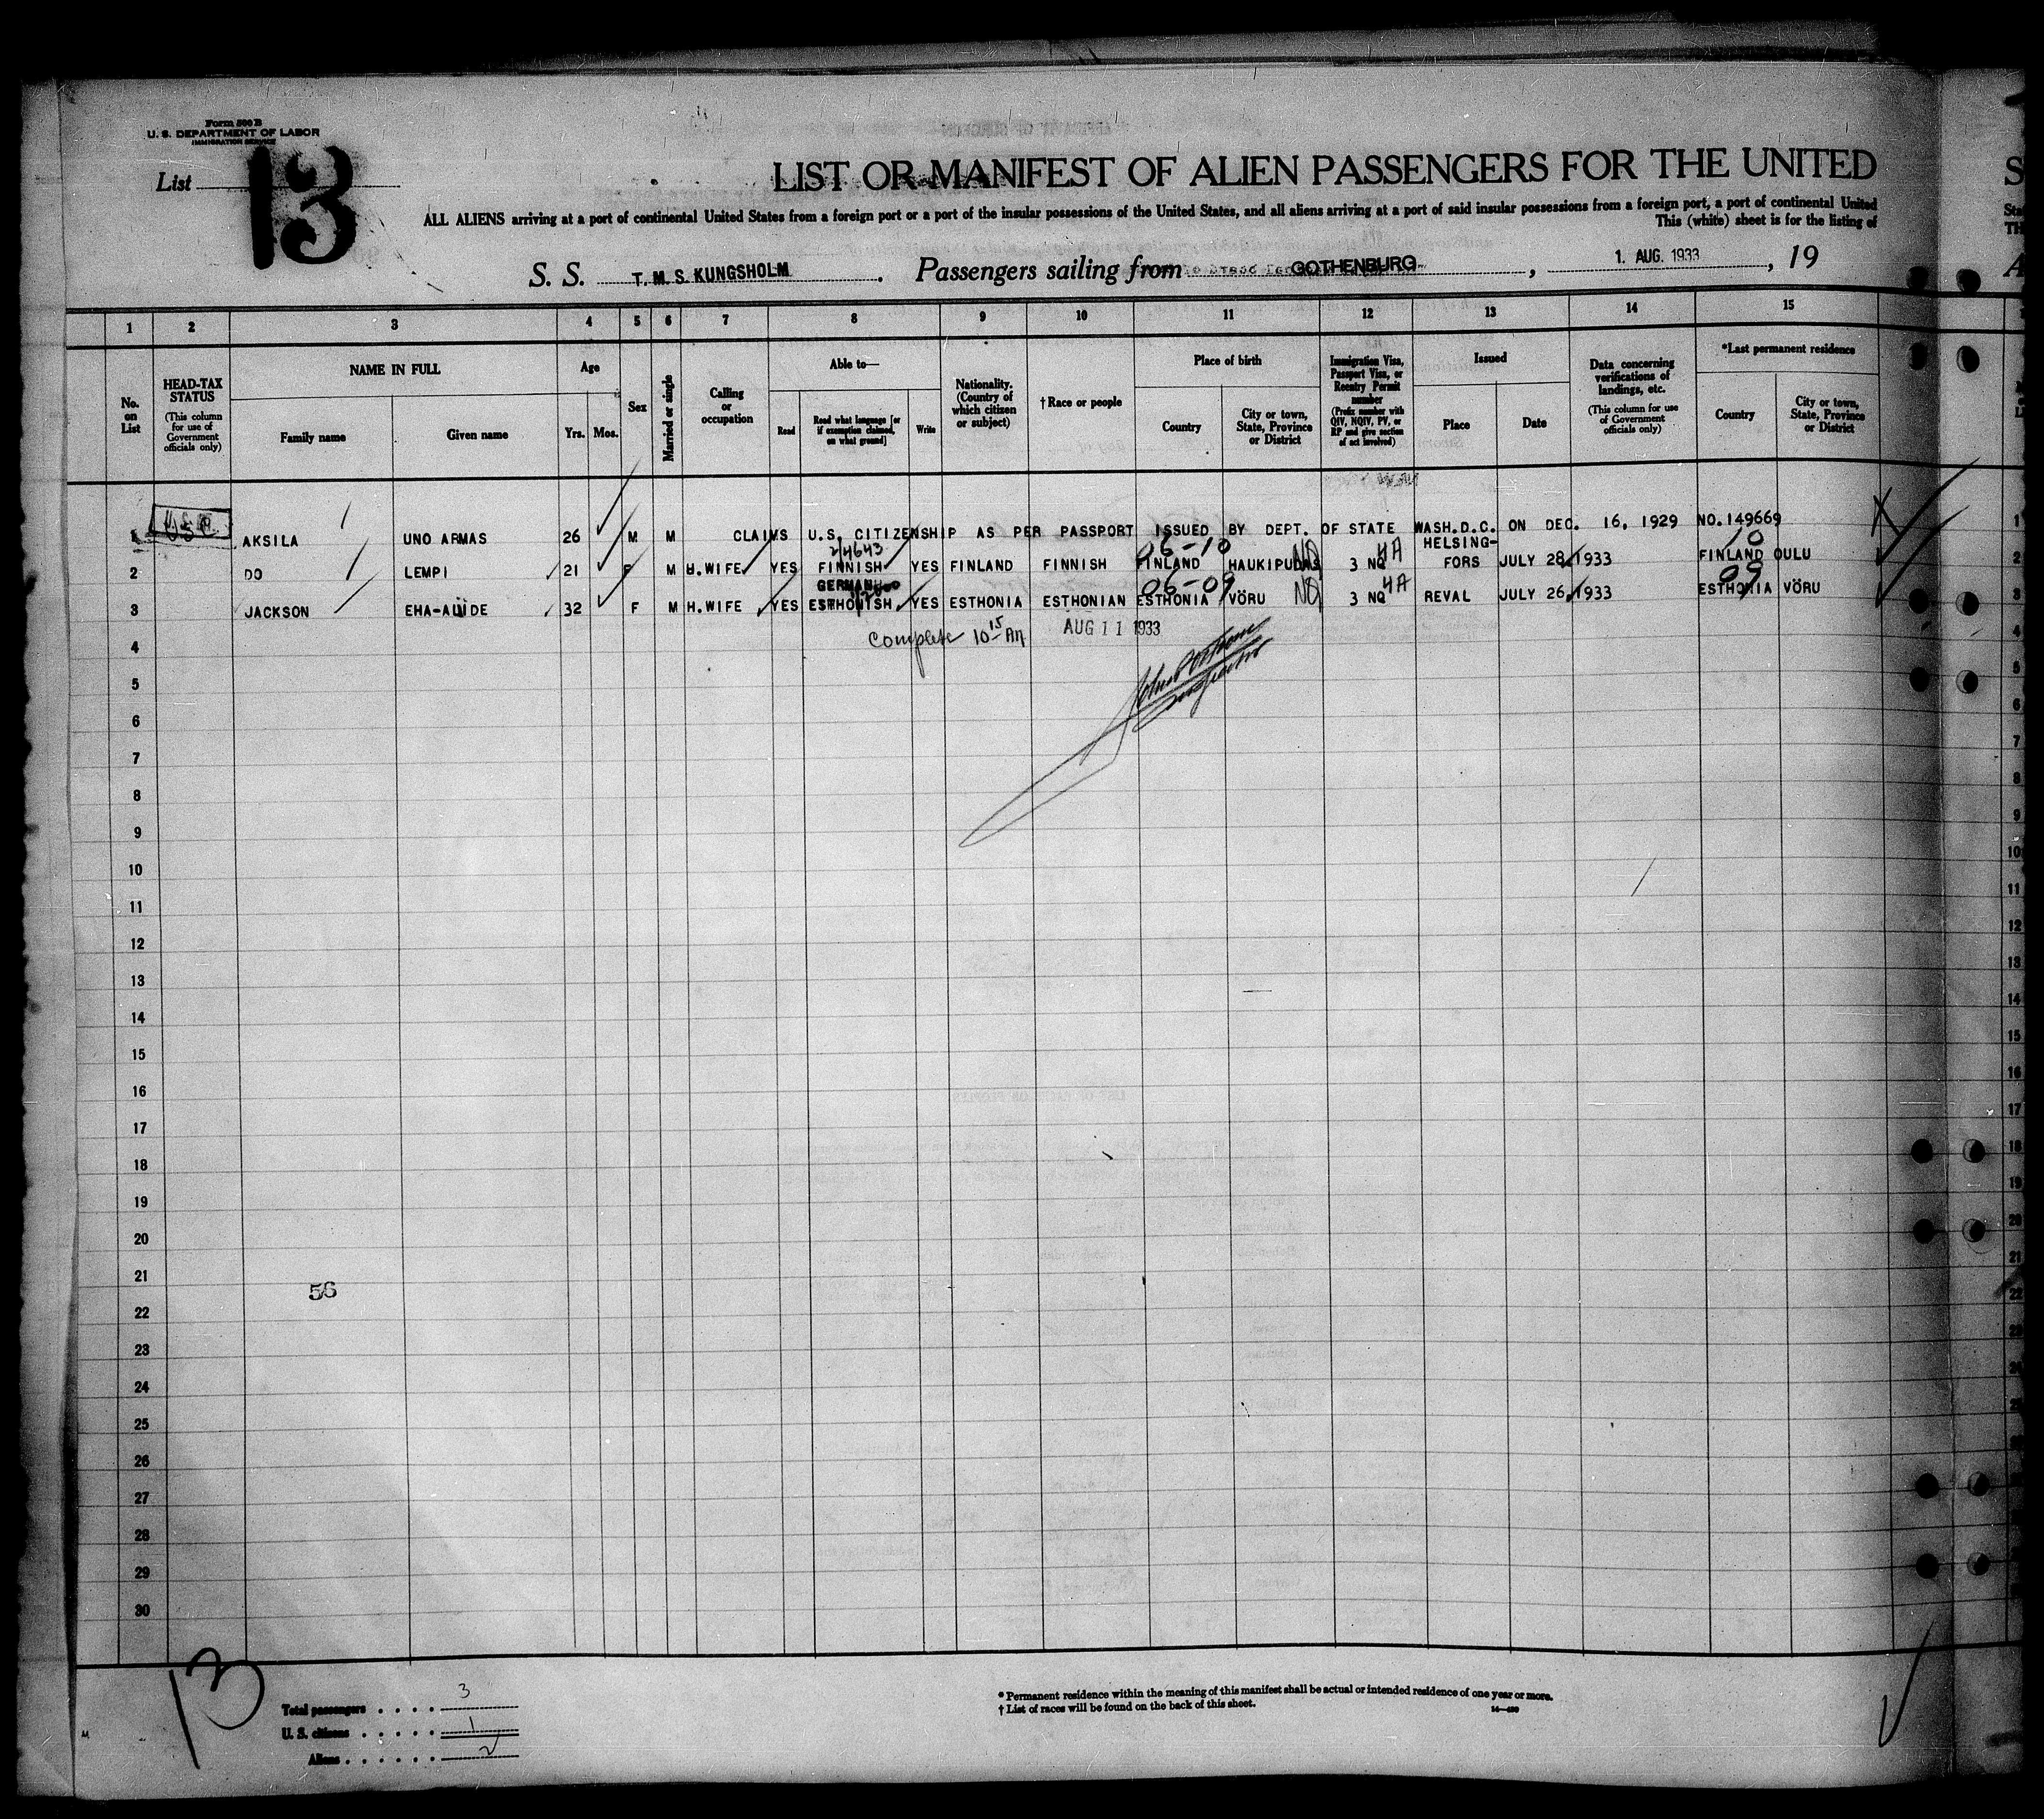 Form 500 B
U. S. DEPARTMENT OF LABOR
IMMIGRATION SERVICE
List 13
LIST OR MANIFEST OF ALIEN PASSENGERS FOR THE UNITED
ALL ALIENS arriving at a port of continental United States from a foreign port or a port of the insular possessions of the United States, and all aliens arriving at a port of said insular possessions from a foreign port, a port of continental United
This (white) sheet is for the listing of
S. S. T. M. S. KUNGSHOLM. Passengers sailing from GOTHENBURG, 1. AUG. 1933, 19
1 2 3 4 5 6 7 8 9 10 11 12 13 14 15
No. on List
HEAD-TAX STATUS (This column for use of Government officials only)
NAME IN FULL
Family name
Given name
Age
Yrs. Mos.
Sex
Married or single
Calling or occupation
Able to—
Read
Read what language [or if exemption claimed, on what ground]
Write
Nationality. (Country of which citizen or subject)
† Race or people
Place of birth
Country
City or town, State, Province or District
Immigration Visa, Passport Visa, or Reentry Permit number (Prefix number with QIV, NQIV, PV, or RP and give section of act involved)
Issued
Place
Date
Data concerning verifications of landings, etc. (This column for use of Government officials only)
*Last permanent residence
Country
City or town, State, Province or District
1 USC AKSILA UNO ARMAS 26 M M CLAIMS U.S. CITIZENSHIP AS PER PASSPORT ISSUED BY DEPT. OF STATE WASH.D.C. ON DEC. 16, 1929 NO.149669 1
24643 06-10 NQ 4A HELSING- 10
2 DO LEMPI 21 F M H.WIFE YES FINNISH YES FINLAND FINNISH FINLAND HAUKIPUDAS 3 NQ FORS JULY 28, 1933 FINLAND OULU 2
GERMAN 06-09 NQ 4A 09
3 JACKSON EHA-ALIDE 32 F M H.WIFE YES ESTHONISH YES ESTHONIA ESTHONIAN ESTHONIA VÖRU 3 NQ REVAL JULY 26, 1933 ESTHONIA VÖRU 3
Complete 10 15 AM AUG 11 1933
Inspector
4 4
5 5
6 6
7 7
8 8
9 9
10 10
11 11
12 12
13 13
14 14
15 15
16 16
17 17
18 18
19 19
20 20
21 21
56
22 22
23
24
25
26
27
28
29
30
13
Total passengers . . . . 3
U. S. citizens . . . . . 1
Aliens . . . . . . 2
* Permanent residence within the meaning of this manifest shall be actual or intended residence of one year or more.
† List of races will be found on the back of this sheet.